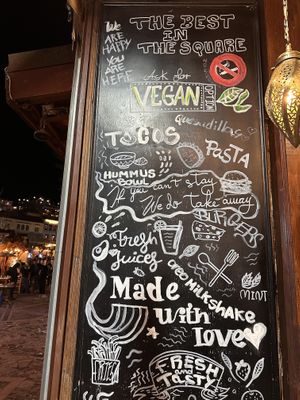 WE ARE HAPPY
YOU ARE HERE
THE BEST
IN THE
SQUARE
Ask for
VEGAN
OPTION
Quesadillas
TACOS
PASTA
HUMMUS
BOWL
If you can't stay
We do take away
BURGERS
fresh
Juices
OREO MILKSHAKE
MINT
Made
with
Love
FRESH
and
TASTY